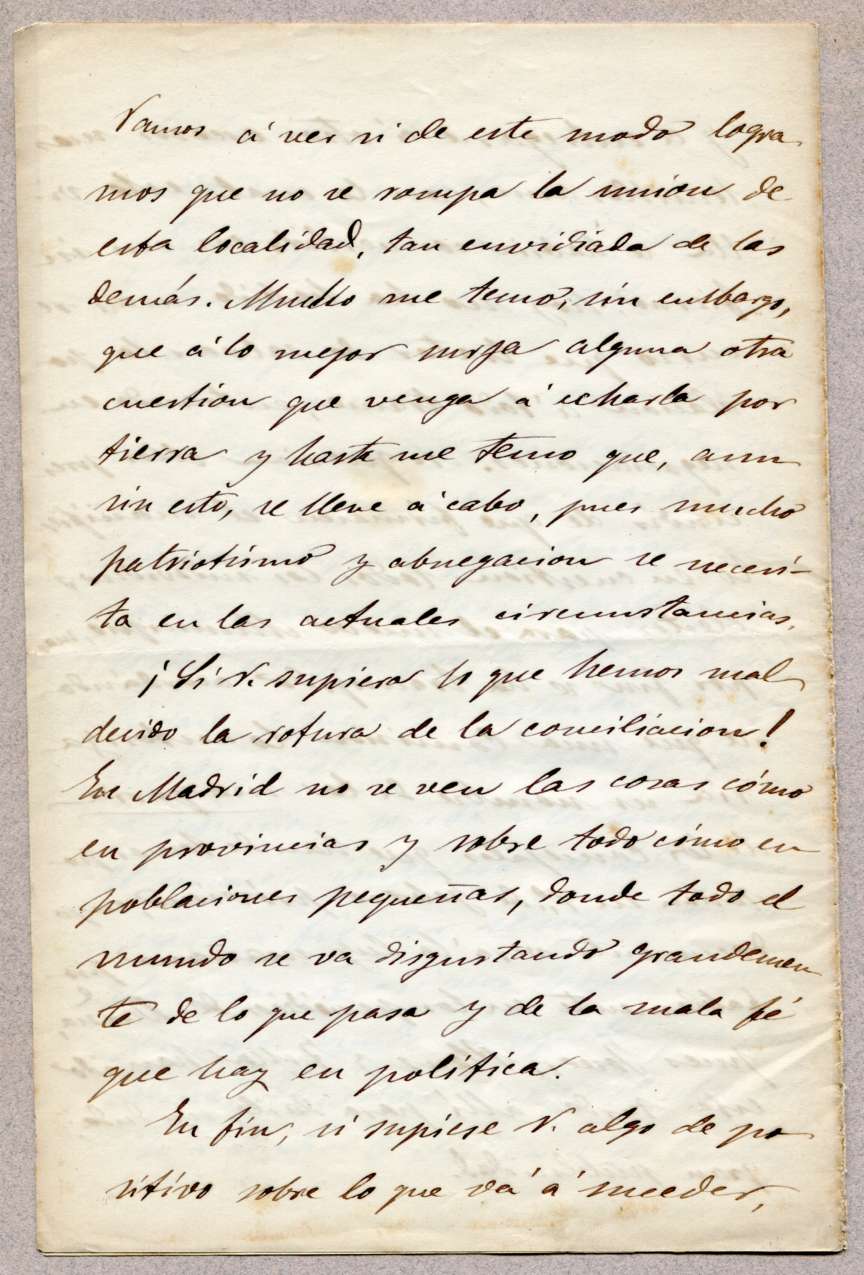 Vamos á ver si de este modo logra-
mos que no se rompa la union de
esta localidad, tan envidiada de las
demás. Mucho me temo, sin embargo,
que á lo mejor surja alguna otra
cuestion que venga á echarla por
tierra y hasta me temo que, aun
sin esto, se lleve á cabo, pues mucho
patriotismo y abnegacion se necesi-
ta en las actuales circunstancias.
¡Si V. supiera lo que hemos mal
decido la rotura de la conciliacion!
En Madrid no se ven las cosas cómo
en provincias y sobre todo cómo en
poblaciones pequeñas, donde todo el
mundo se va disgustando grandemen-
te de lo que pasa y de la mala fé
que hay en política.
En fin, si supiese V. algo de po-
sitivo sobre lo que vá á suceder,